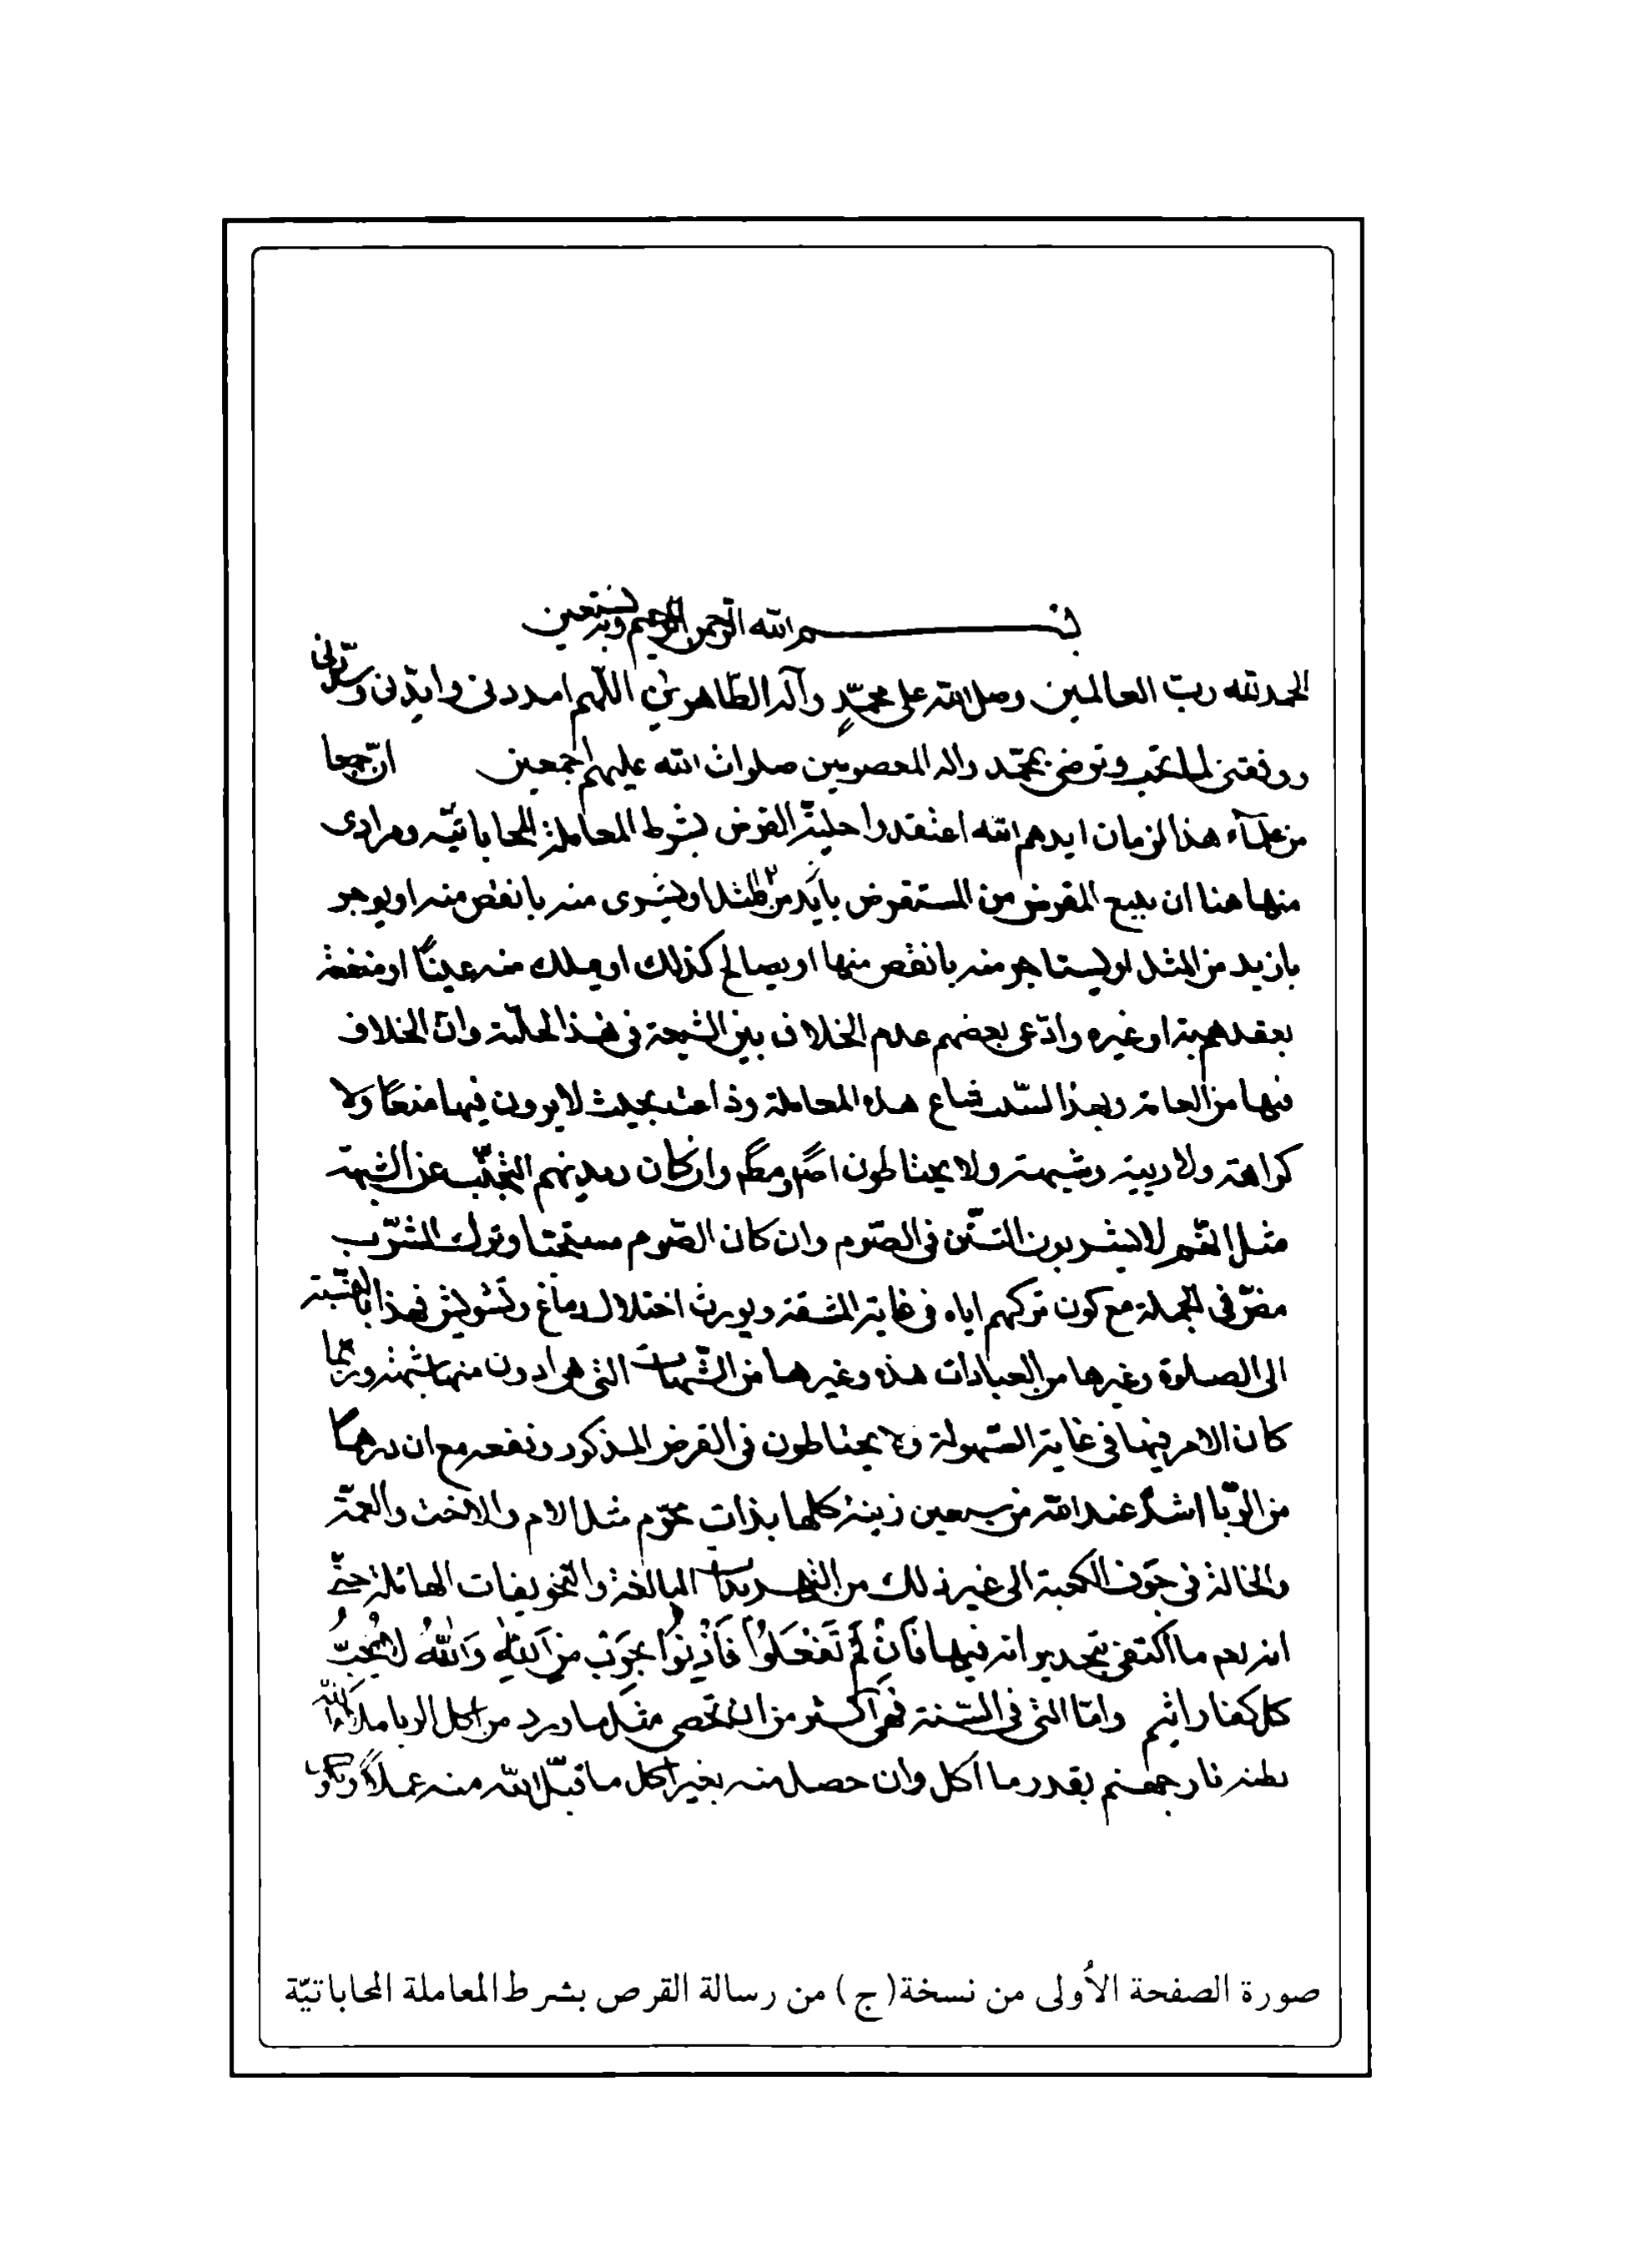 بسم الله الرحمن الرحيم وبه نستعين
الحمد لله ربّ العالمين وصلى الله على محمّدٍ وآله الطّاهرين اللّهم امددنى وايّدنى وسدّدنى
ووفقنى لما تحب وترضى بمحمّد واله المعصومين صلوات الله عليهم اجمعين انّ جمعا
من علمآء هذا الزمان ايدهم الله اعتقدوا حلية القرض بشرط المعاملة المحاباتيّه ومرادى
منها هنا ان يبيع المقرض من المستقرض بازيد من المثل او يشترى منه بانقص منه او يوجر
بازيد من المثل او يستاجر منه بانقص منها او يصالح كذلك او يملك منه عيناً او منفعة
بعقد هبة او غيره وادّعى بعضهم عدم الخلاف بين الشيعة فى هذا الحلّية وانّ الخلاف
فيها من العامة وبهذا السّبب شاع هذه المعاملة وذاعت بحيث لا يرون فيها منعاً ولا
كراهة ولا ريبة وشبهة ولا يحتاطون اصلا ومطلقا وان كان ديدنهم التجنّب عن الشبهة
مثل انهم لا يشربون التتن فى الصّوم وان كان الصّوم مستحبا وترك الشرب
مضرّ فى الجملة مع كون تركهم اياه فى غاية المشقة ويورث اختلال دماغ وتشويش فهذا بالنّسبة
الى الصلوة وغيرها من العبادات هذه وغيرها من الشّبهات التى هى ادون منها شبهة وربّما
كان الامر فيها فى غاية السّهولة ولا يحتاطون فى القرض المذكور ونفعه مع ان درهماً
من الرّبا اشدّ عند الله من سبعين زنية كلها بذات محرّم مثل الام والاخت والعمّة
والخالة فى جوف الكعبة الى غير ذلك من التهديدات البالغة والتخويفات الهائلة حتّى
انه لم ما اكتفى بتحذيراته فيها فَاِنْ لَمْ تَفْعَلُوا فَأْذَنُوا بِحَرْبٍ مِنَ اللهِ وَاللهُ لا يُحِبُّ
كل كفار اثيم وامّا التى فى السّنة فهى اكثر من ان تحصى مثل ما ورد من اكل الربا ملا الله
بطنه نار جهنم بقدر ما اكل وان حصل منه بغير اكل ما قبل الله منه عملاً
صورة الصفحة الأولى من نسخة (ج) من رسالة القرص بشرط المعاملة المحاباتيّة